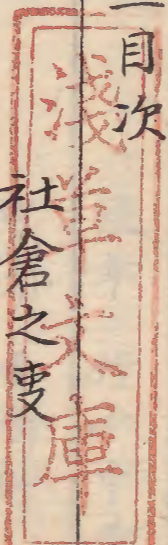 一目次
社倉之叓
淺草文庫